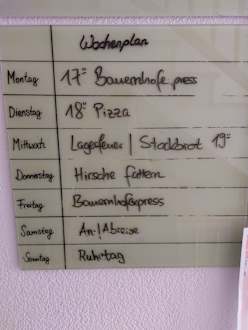 Wochenplan
Montag 17°° Bauernhofexpress
Dienstag 18°° Pizza
Mittwoch Lagerfeuer | Stockbrot 19°°
Donnerstag Hirsche füttern
Freitag Bauernhofexpress
Samstag An-/Abreise
Sonntag Ruhetag